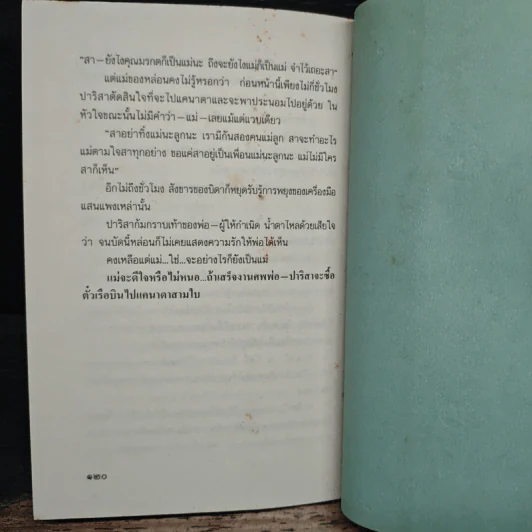 "สา–ยังไงคุณมรกตก็เป็นแม่นะ ถึงจะยังไงแม่ก็เป็นแม่ จำไว้เถอะสา"
แต่แม่ของหล่อนคงไม่รู้หรอกว่า ก่อนหน้านี้เพียงไม่กี่ชั่วโมง
ปาริสาตัดสินใจที่จะไปแคนาดาและจะพาประนอมไปอยู่ด้วย ใน
หัวใจขณะนั้นไม่มีคำว่า–แม่–เลยแม้แต่แวบเดียว
"สาอย่าทิ้งแม่นะลูกนะ เรามีกันสองคนแม่ลูก สาจะทำอะไร
แม่ตามใจสาทุกอย่าง ขอแค่สาอยู่เป็นเพื่อนแม่นะลูกนะ แม่ไม่มีใคร
สาก็เห็น"
อีกไม่ถึงชั่วโมง สังขารของบิดาก็หยุดรับรู้การพยุงของเครื่องมือ
แสนแพงเหล่านั้น
ปาริสาก้มกราบเท้าของพ่อ–ผู้ให้กำเนิด น้ำตาไหลด้วยเสียใจ
ว่า จนบัดนี้หล่อนก็ไม่เคยแสดงความรักให้พ่อได้เห็น
คงเหลือแต่แม่...ใช่...จะอย่างไรก็ยังเป็นแม่
แม่จะดีใจหรือไม่หนอ...ถ้าเสร็จงานศพพ่อ–ปาริสาจะซื้อ
ตั๋วเรือบินไปแคนาดาสามใบ
๑๒๐